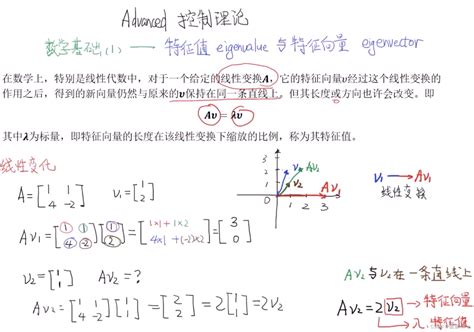 Advanced 控制理论
数学基础(1) —— 特征值 eigenvalue 与特征向量 eigenvector
在数学上，特别是线性代数中，对于一个给定的线性变换A，它的特征向量v经过这个线性变换的
作用之后，得到的新向量仍然与原来的v保持在同一条直线上，但其长度或方向也许会改变。即
Av = λv
其中λ为标量，即特征向量的长度在该线性变换下缩放的比例，称为其特征值。
线性变化
A = [1 1; 4 -2] v1 = [1; 2]
Av1 = [1 1; 4 -2][1; 2] = [1×1 + 1×2; 4×1 + (-2)×2] = [3; 0]
3
2
1
0 1 2 3
v1 v2 Av2 Av1
v1 → Av1
线性变换
v2 = [1; 1] Av2 = ?
Av2 = [1 1; 4 -2][1; 1] = [2; 2] = 2[1; 1] = 2v2
Av2 与 v2 在一条直线上
Av2 = 2 v2 → 特征向量
λ. 特征值